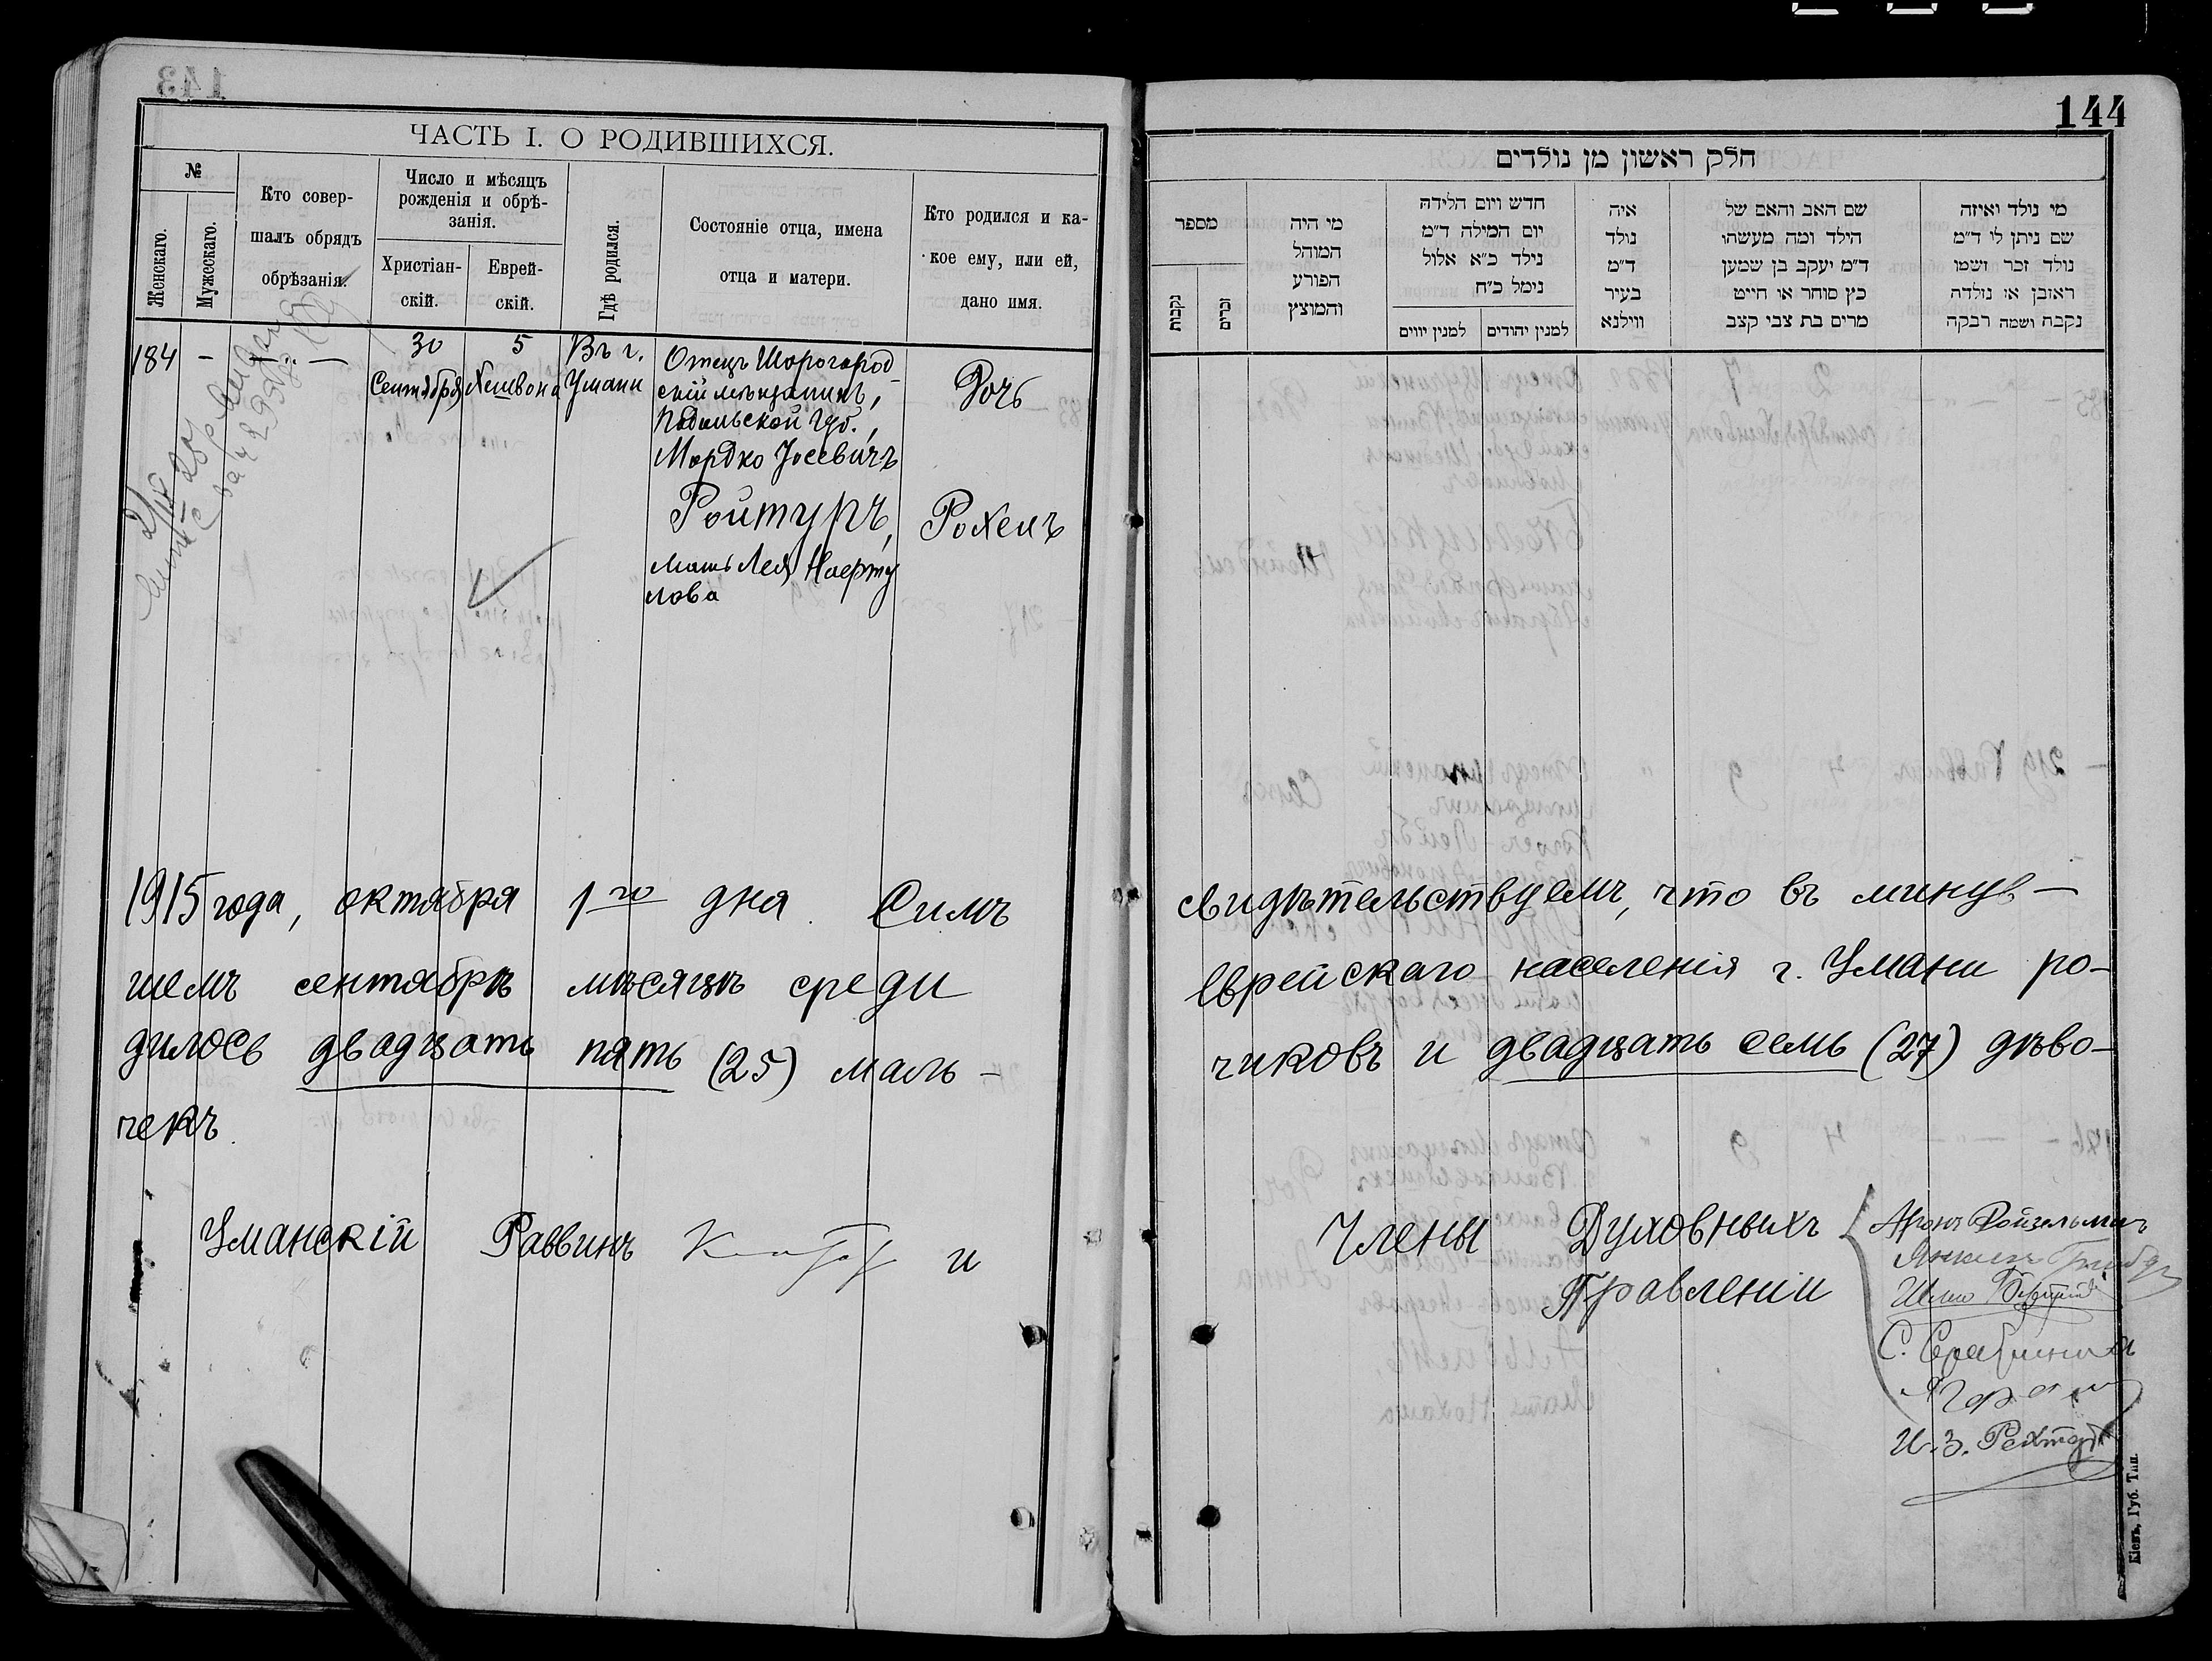 ЧАСТЬ I. О РОДИВШИХСЯ.
№
Женскаго.
Мужескаго.
Кто совер-
шалъ обрядъ
обрѣзанія.
Число и мѣсяцъ
рожденія и обрѣ-
занія.
Христіан-
скій.
Еврей-
скій.
Гдѣ родился.
Состояніе отца, имена
отца и матери.
Кто родился и ка-
кое ему, или ей,
дано имя.
184 — — " —
30
Сентября
5
Хешвона
Въ г.
Умани
Отецъ Шорогород
скій мѣщанинъ,
Подольской губ.,
Мордко Іосевичъ
Ройтуръ,
мать Лея
лова
Дочь
Рохель
1915 года, октября 1го дня. Симъ
шемъ сентябрѣ мѣсяцѣ среди
дилось двадцать пять (25) маль-
чекъ.
Уманскій Раввинъ и
144
חלק ראשון מן נולדים
מספר
נקבות
זכרים
מי היה
המוהל
הפורע
והמוצץ
חדש ויום הלידה
יום המילה ד״מ
נילד כ״א אלול
נימל כ״ח
למנין יווים
למנין יהודים
איה
נולד
ד״מ
בעיר
ווילנא
שם האב והאם של
הילד ומה מעשהו
ד״מ יעקב בן שמען
כץ סוחר או חייט
מרים בת צבי קצב
מי נולד ואיזה
שם ניתן לו ד״מ
נולד זכר ושמו
ראובן או נולדה
נקבה ושמה רבקה
свидѣтельствуемъ, что въ минув-
еврейскаго населенія г. Умани ро-
чиковъ и двадцать семь (27) дѣво-
Члены Духовныхъ
Правленіи
Аронъ Ройзельманъ
С.
И.З.
Кіевъ, Губ. Тип.
143